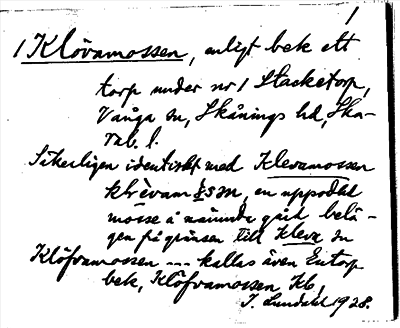 1
1 Klövamossen, enligt bek ett
torp under nr 1 Stacketorp,
Vånga sn, Skånings hd, Ska-
rab. l.
Säkerligen identiskt med Klevamossen
en uppodlad
mosse å nämnda gård belä-
gen på gränsen till Kleva sn
Klöfvamossen --- kallas även Entorp
bek, Klöfvamossen Kb,
J. Lundahl 1928.